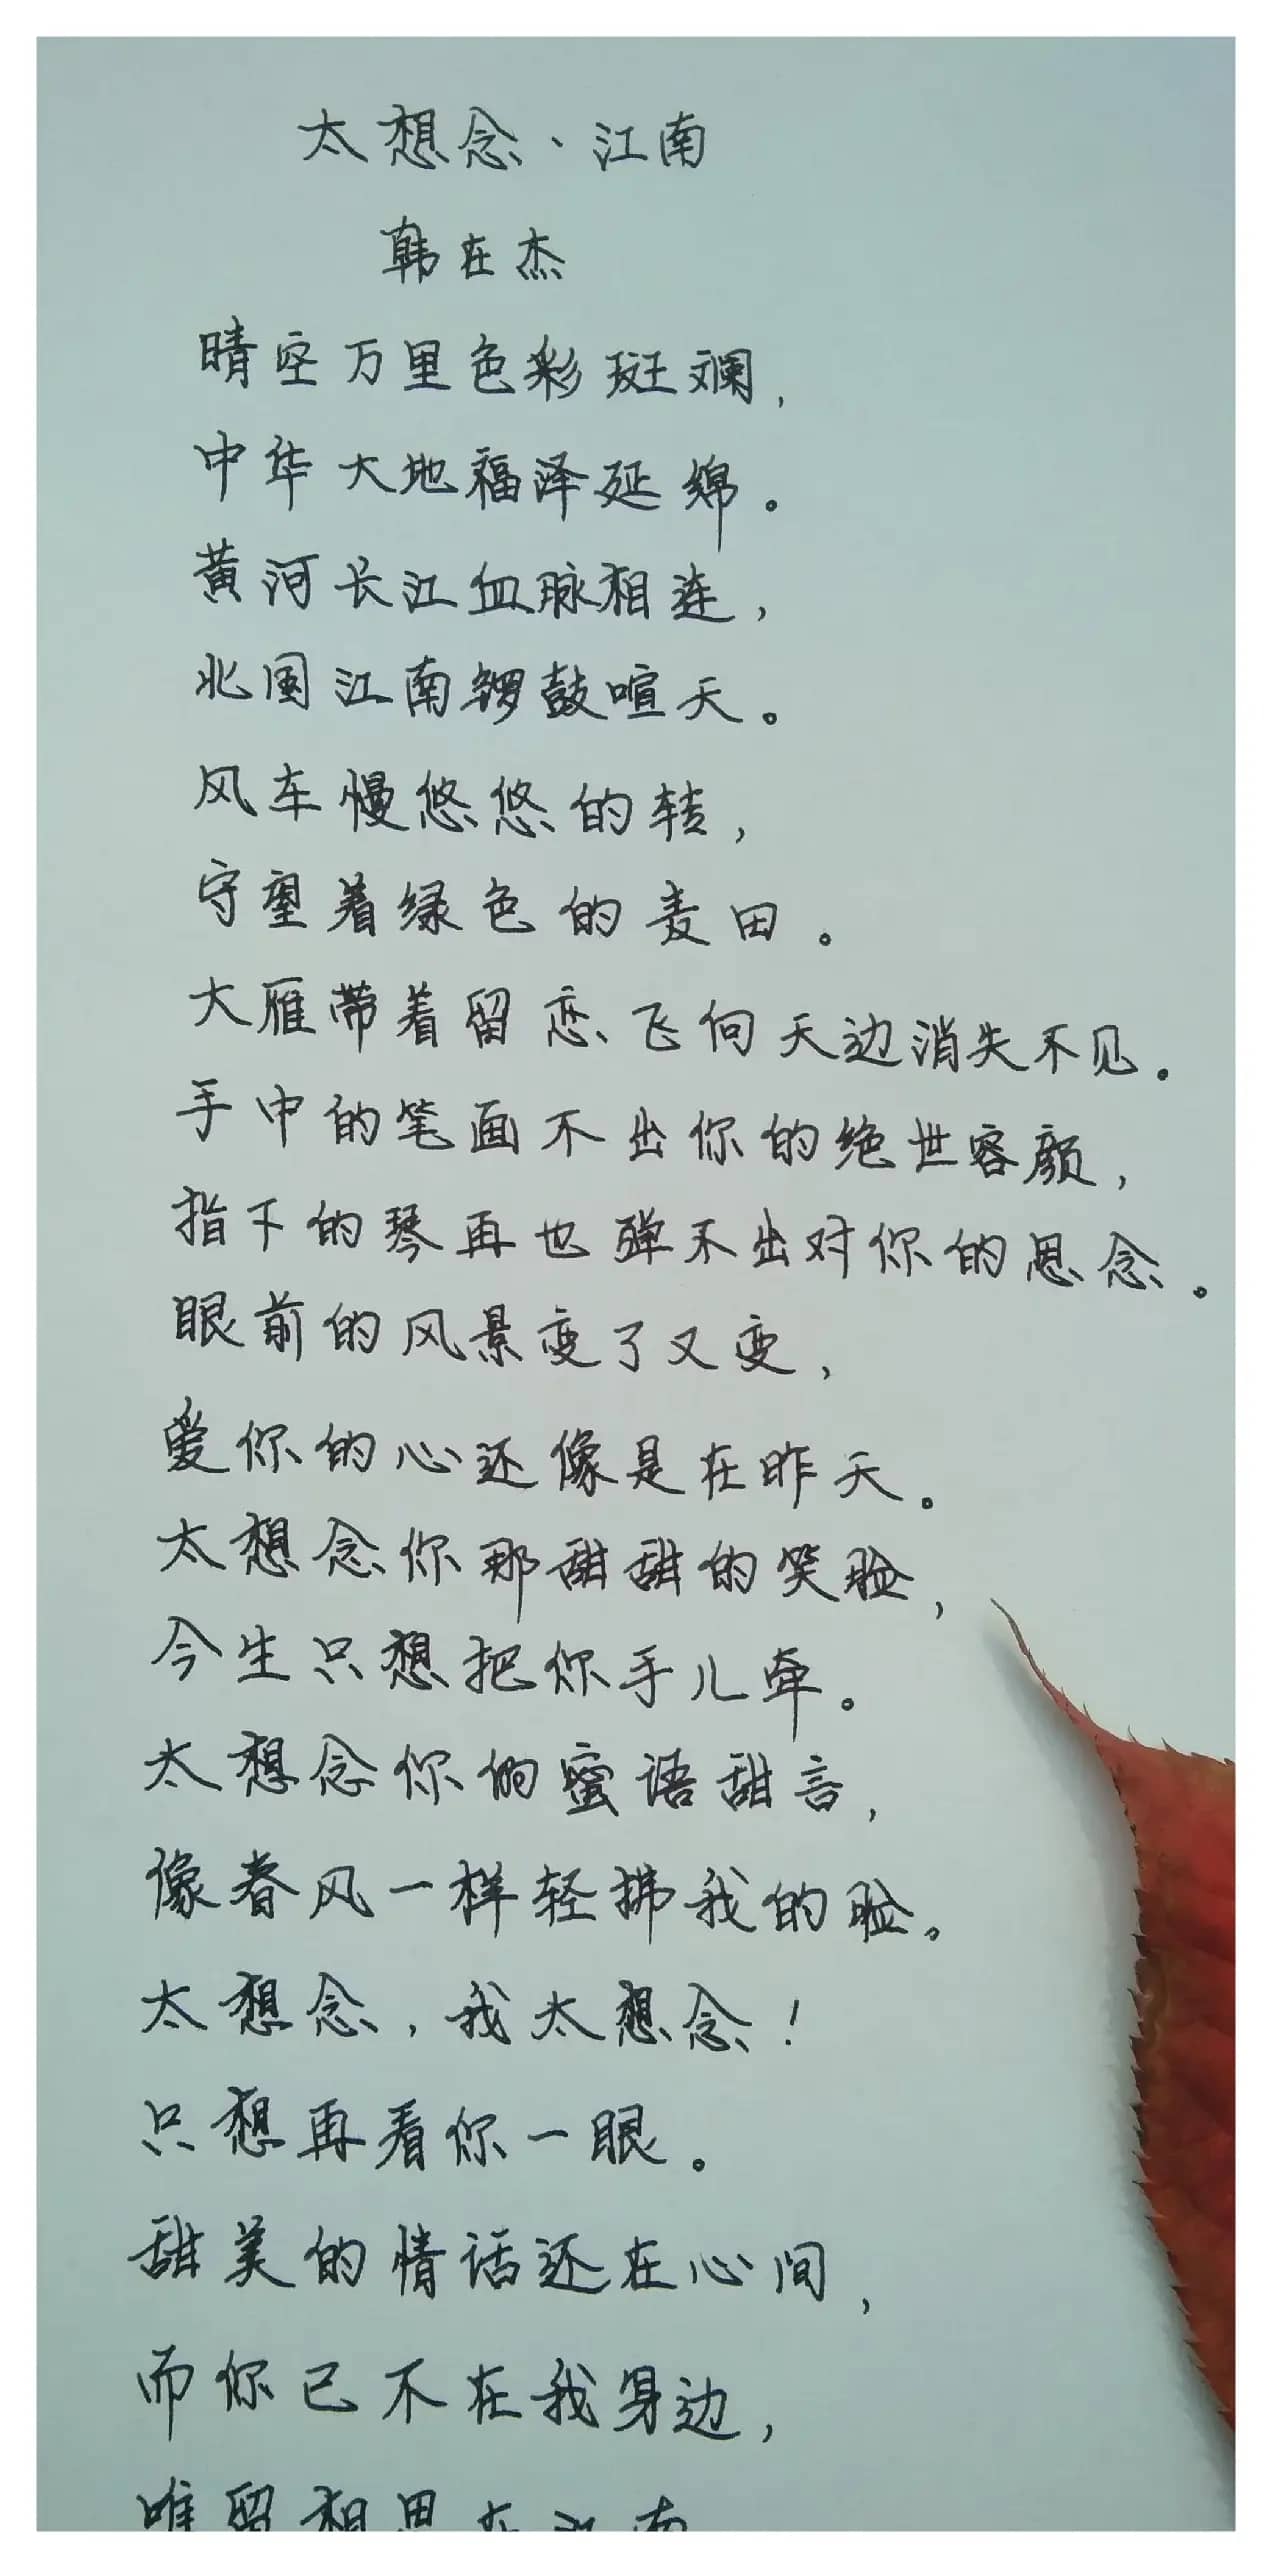 太想念、江南
韩在杰
晴空万里色彩斑斓，
中华大地福泽延绵。
黄河长江血脉相连，
北国江南锣鼓喧天。
风车慢悠悠的转，
守望着绿色的麦田。
大雁带着留恋飞向天边消失不见。
手中的笔画不出你的绝世容颜，
指下的琴再也弹不出对你的思念。
眼前的风景变了又变，
爱你的心还像是在昨天。
太想念你那甜甜的笑脸，
今生只想把你手儿牵。
太想念你的蜜语甜言，
像春风一样轻拂我的脸。
太想念，我太想念！
只想再看你一眼。
甜美的情话还在心间，
而你已不在我身边，
唯留相思在江南